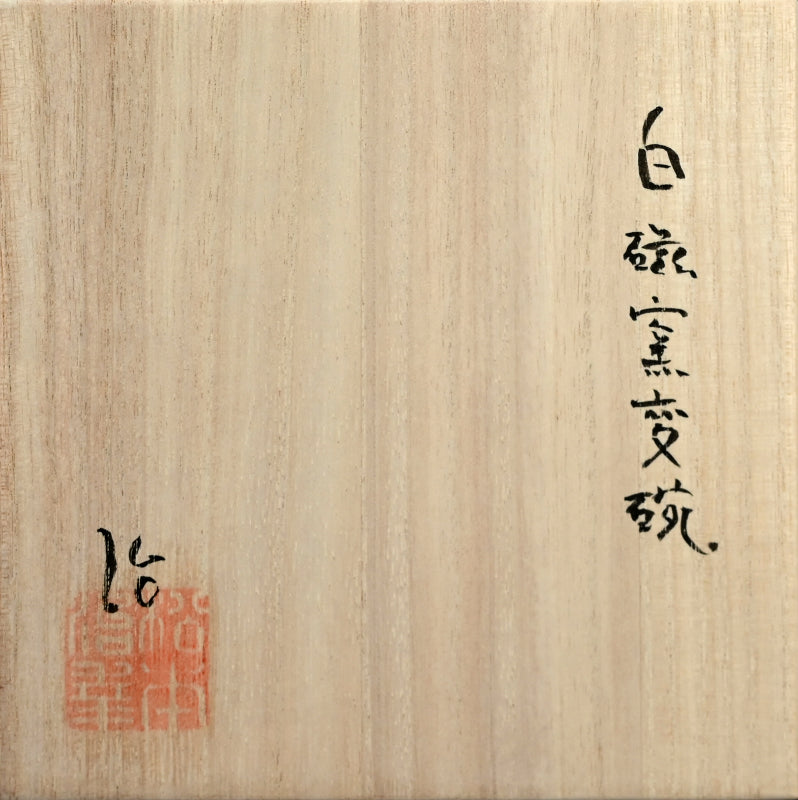 白磁窯変碗
治